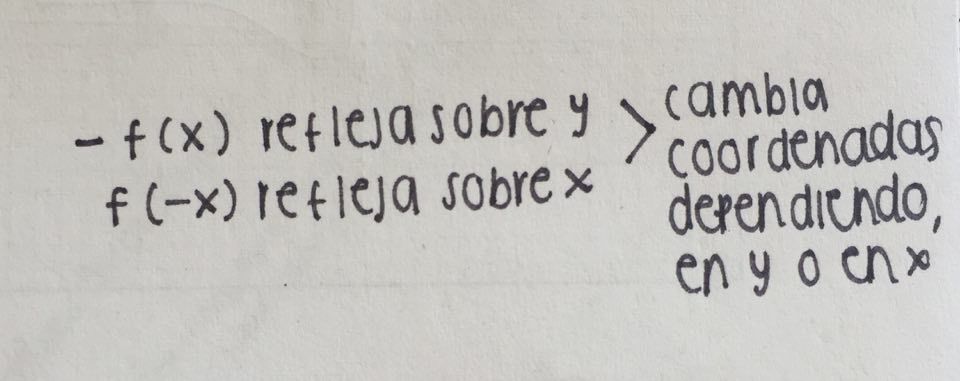 - f(x) refleja sobre y
f(-x) refleja sobre x
> cambia
coordenadas
dependiendo,
en y o en x